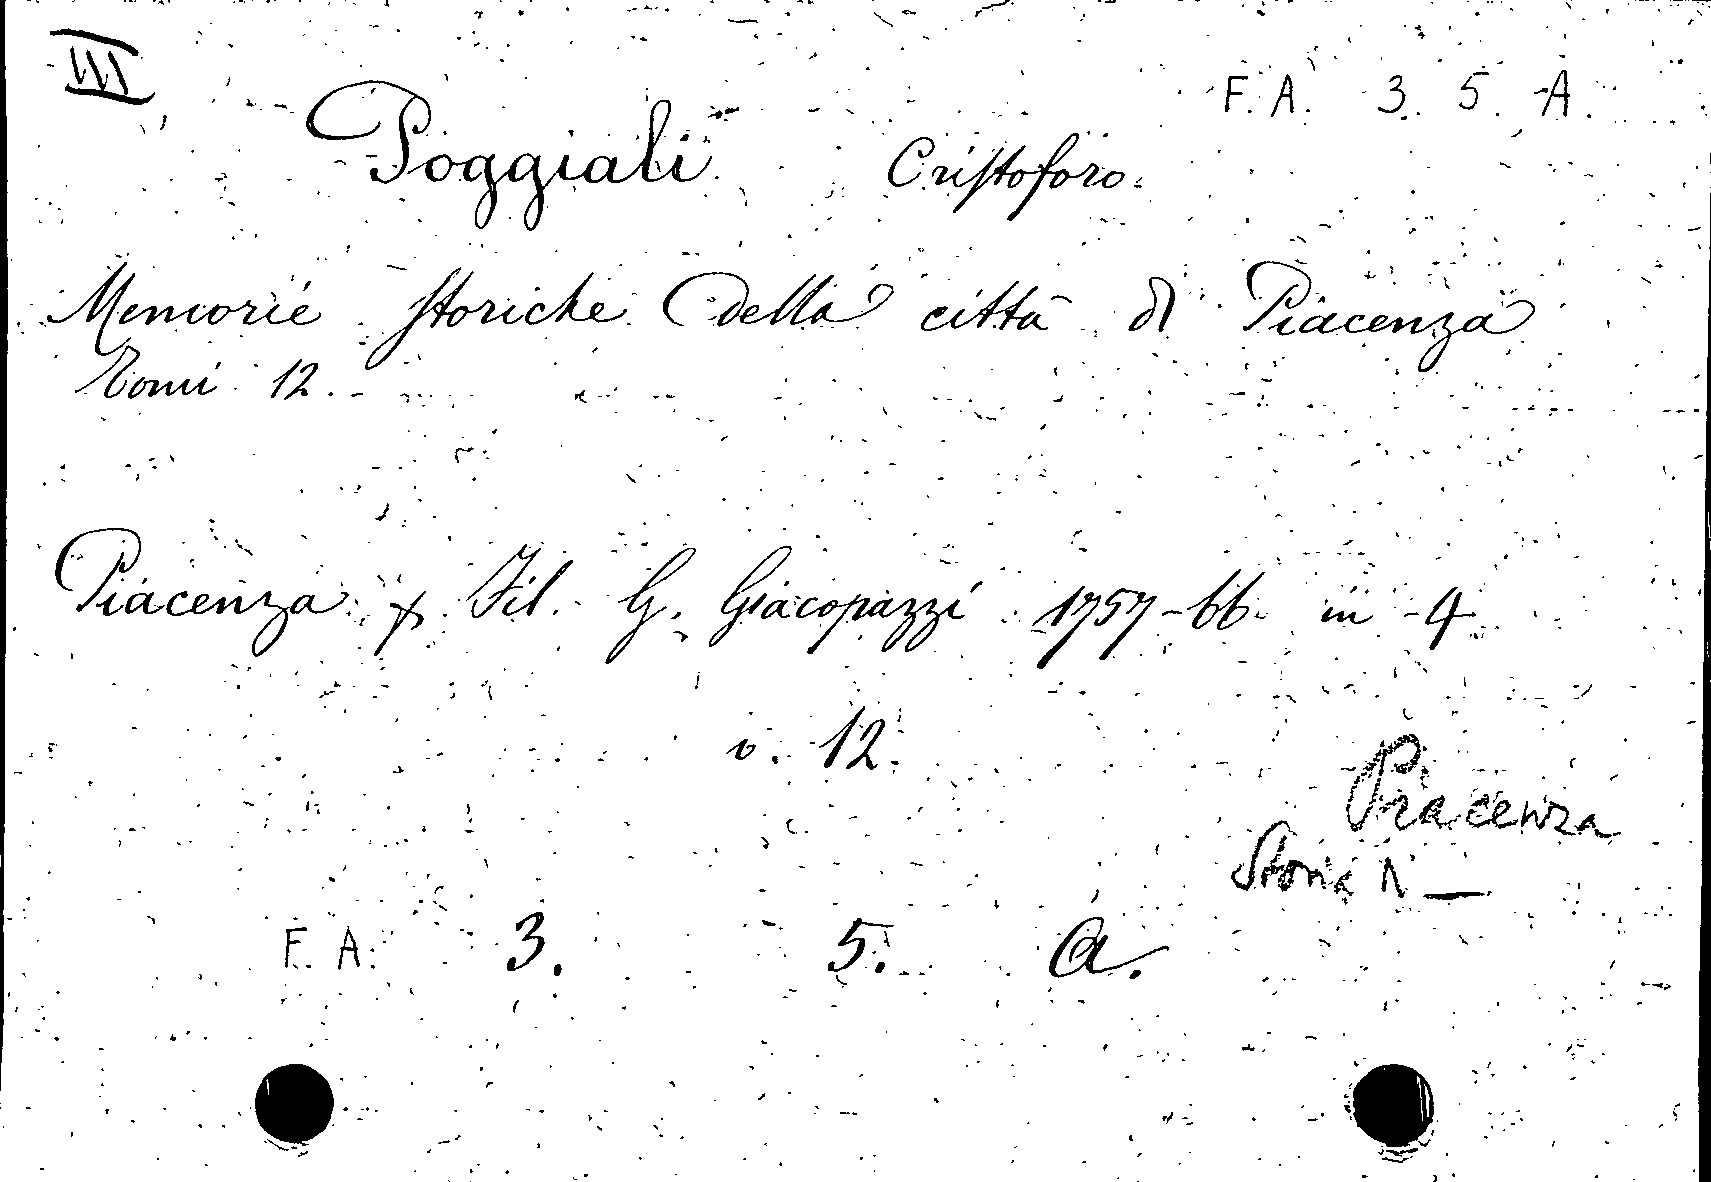 III
F. A. 3. 5. A.
Poggiali Cristoforo.
Memorie storiche della città di Piacenza
Tomi 12.
Piacenza p Fil. G. Giacopazzi 1757-66 in 4
v. 12.
Piacenza
Storia
F. A. 3. 5. a.